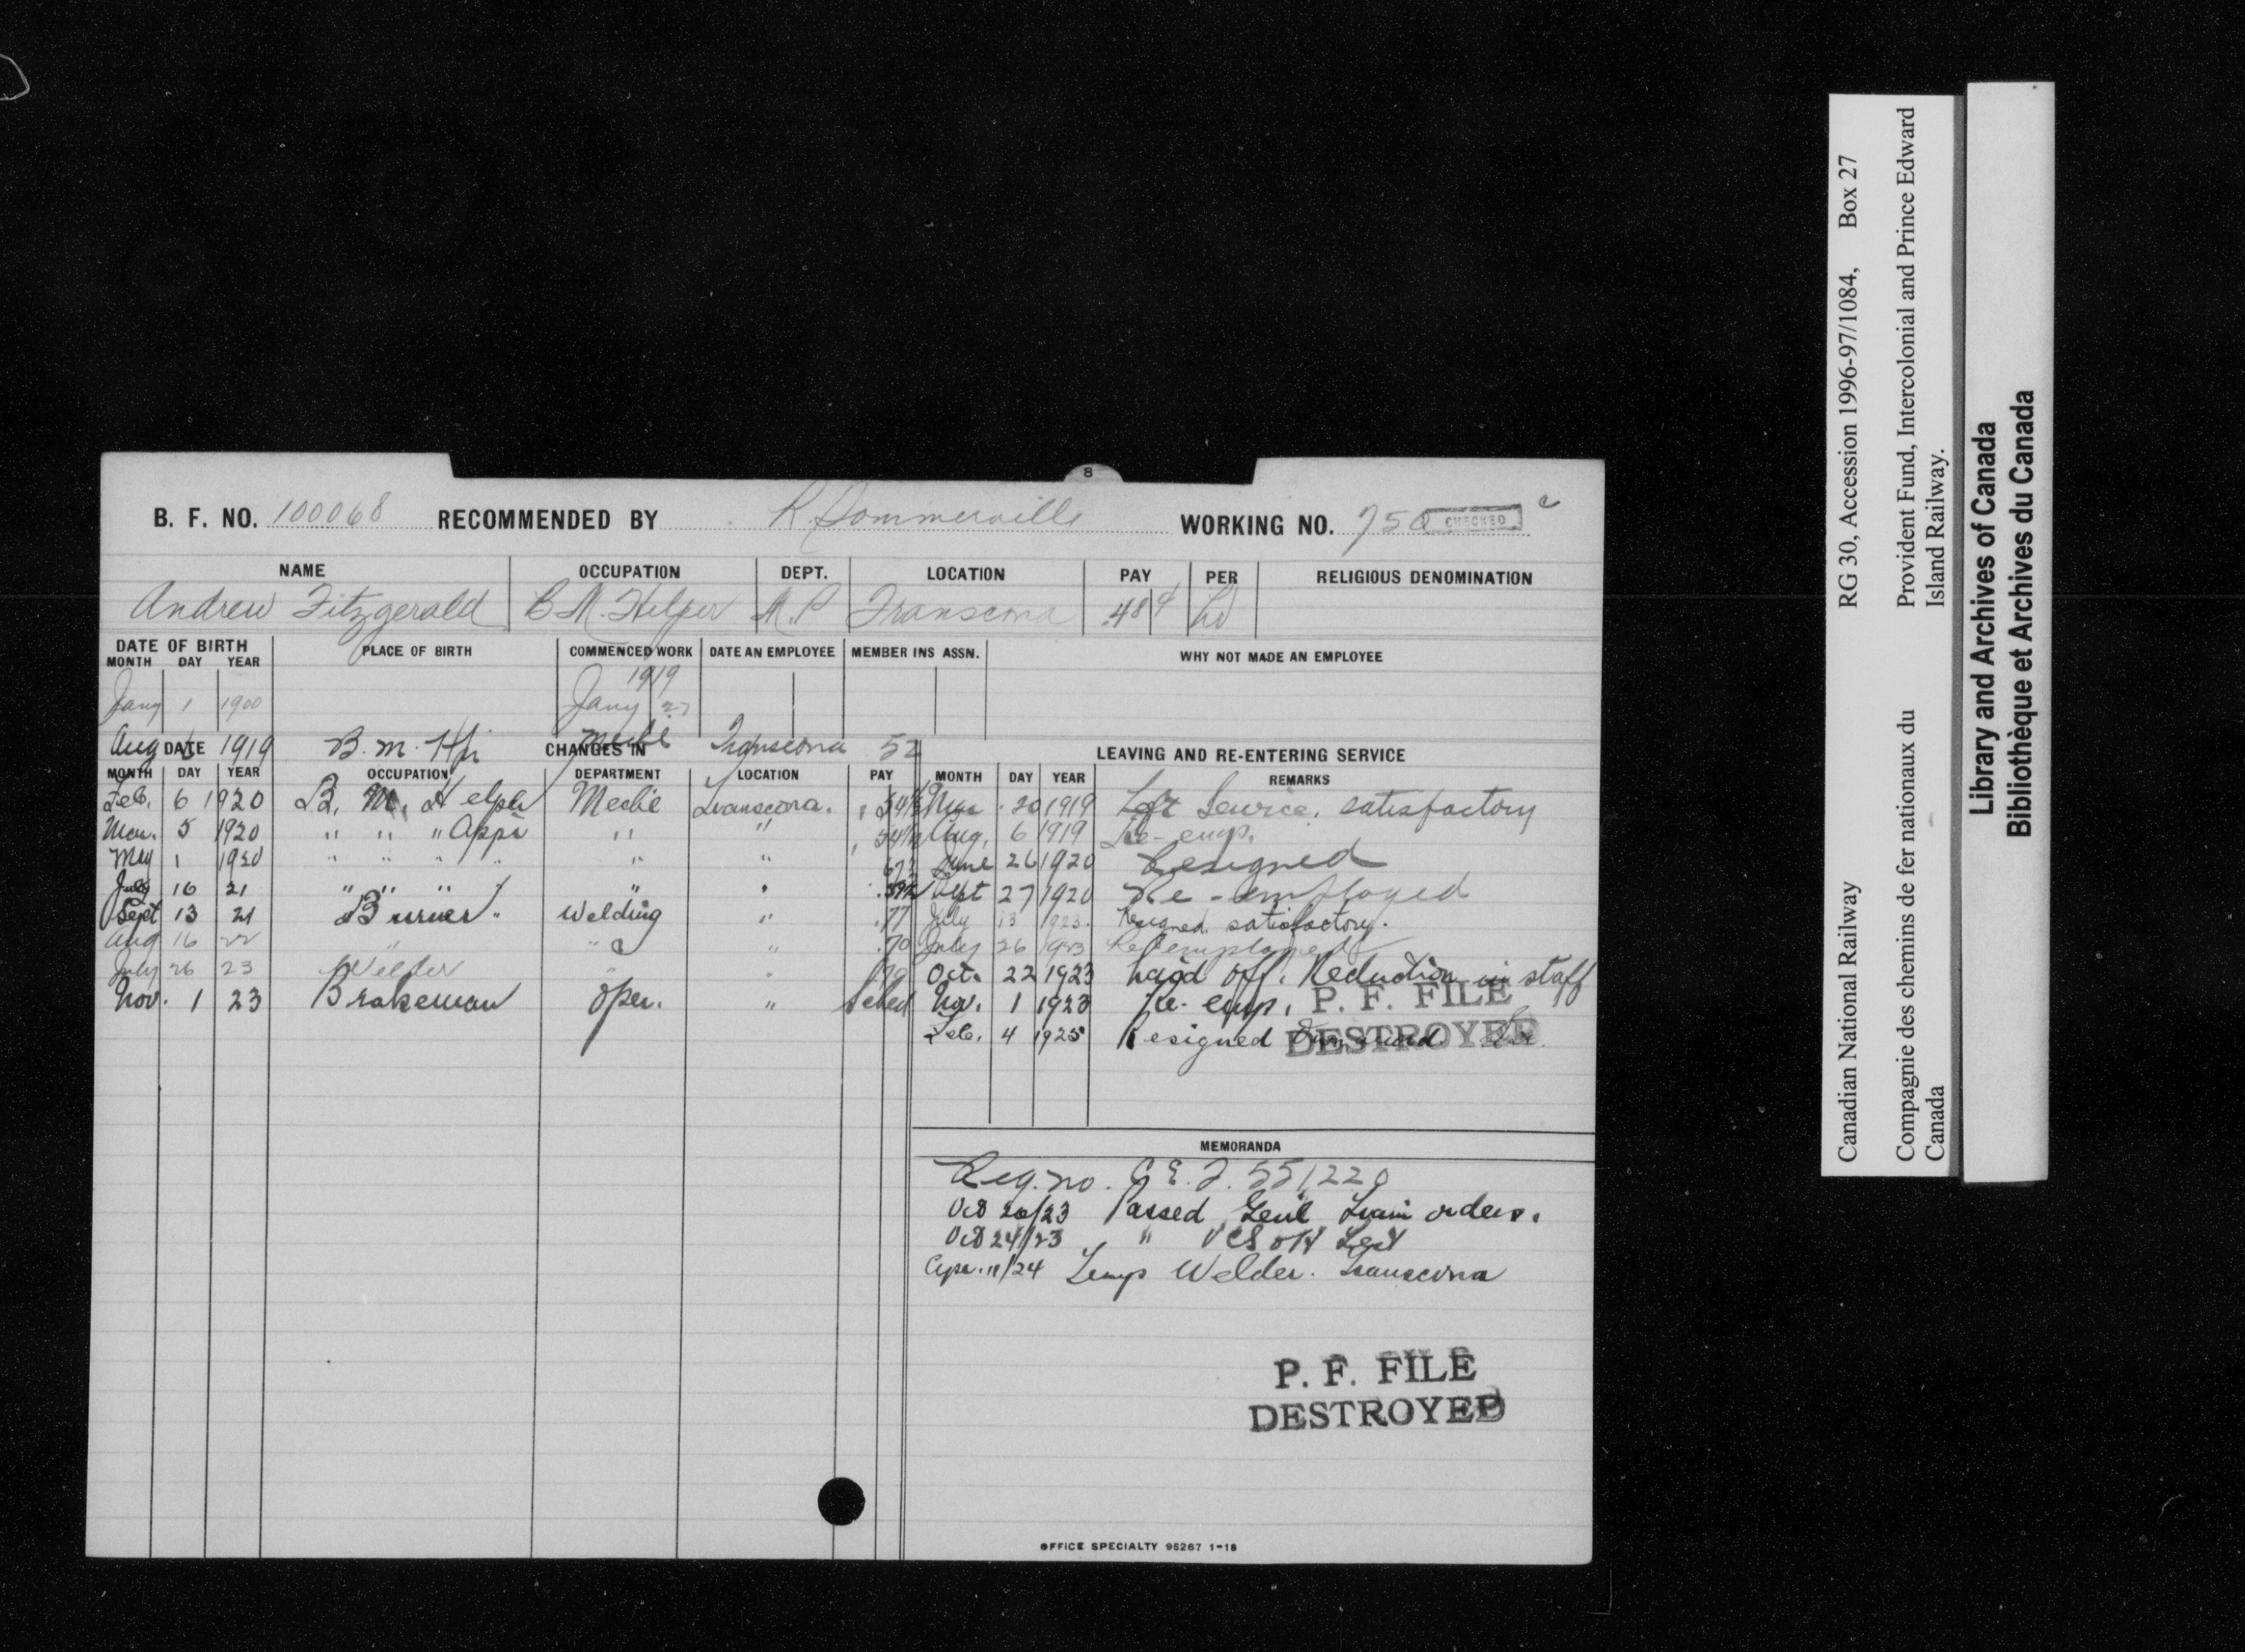 8
B. F. NO. 100068 RECOMMENDED BY R. Sommerville WORKING NO. 750 CHECKED c
NAME OCCUPATION DEPT. LOCATION PAY PER RELIGIOUS DENOMINATION
Andrew Fitzgerald B M. Helper M. P Transcona .48¢
DATE OF BIRTH PLACE OF BIRTH COMMENCED WORK DATE AN EMPLOYEE MEMBER INS ASSN. WHY NOT MADE AN EMPLOYEE
MONTH DAY YEAR
1919
Jany 1 1900 Jany 27
Aug 6 1919 B. M. Hpr Mechl Transcona 52
DATE CHANGES IN LEAVING AND RE-ENTERING SERVICE
MONTH DAY YEAR OCCUPATION DEPARTMENT LOCATION PAY MONTH DAY YEAR REMARKS
Feb. 6 1920 B. M. Helper Mechl Transcona. 54½ Mar 20 1919 Left Service. satisfactory
Mar. 5 1920 " " " Appr " " 54½ Aug. 6 1919 Re-emp.
May 1 1920 " " " " " " June 26 1920 Resigned
July 16 21 " " " " " " Sept 27 1920 Re-employed
Sept 13 21 Burner " Welding " .77 July 13 1923 Resigned satisfactory.
Aug 16 22 " " " .70 July 26 1923 Re-employed
July 26 23 Welder " " Oct. 22 1923 Laid off. Reduction in staff
Nov. 1 23 Brakeman Oper. " Sched Nov. 1 1923 Re-emp. P. F. FILE
Feb. 4 1925 Resigned DESTROYED
MEMORANDA
Reg. no. C. E. F. 551220
Oct 20/23 Passed Genl Train orders.
Oct 24/23 " Test
Apr. 11/24 Temp Welder. Transcona
P. F. FILE
DESTROYED
OFFICE SPECIALTY 95267 1-18
Canadian National Railway RG 30, Accession 1996-97/1084, Box 27
Compagnie des chemins de fer nationaux du Provident Fund, Intercolonial and Prince Edward
Canada Island Railway.
Library and Archives of Canada
Bibliothèque et Archives du Canada